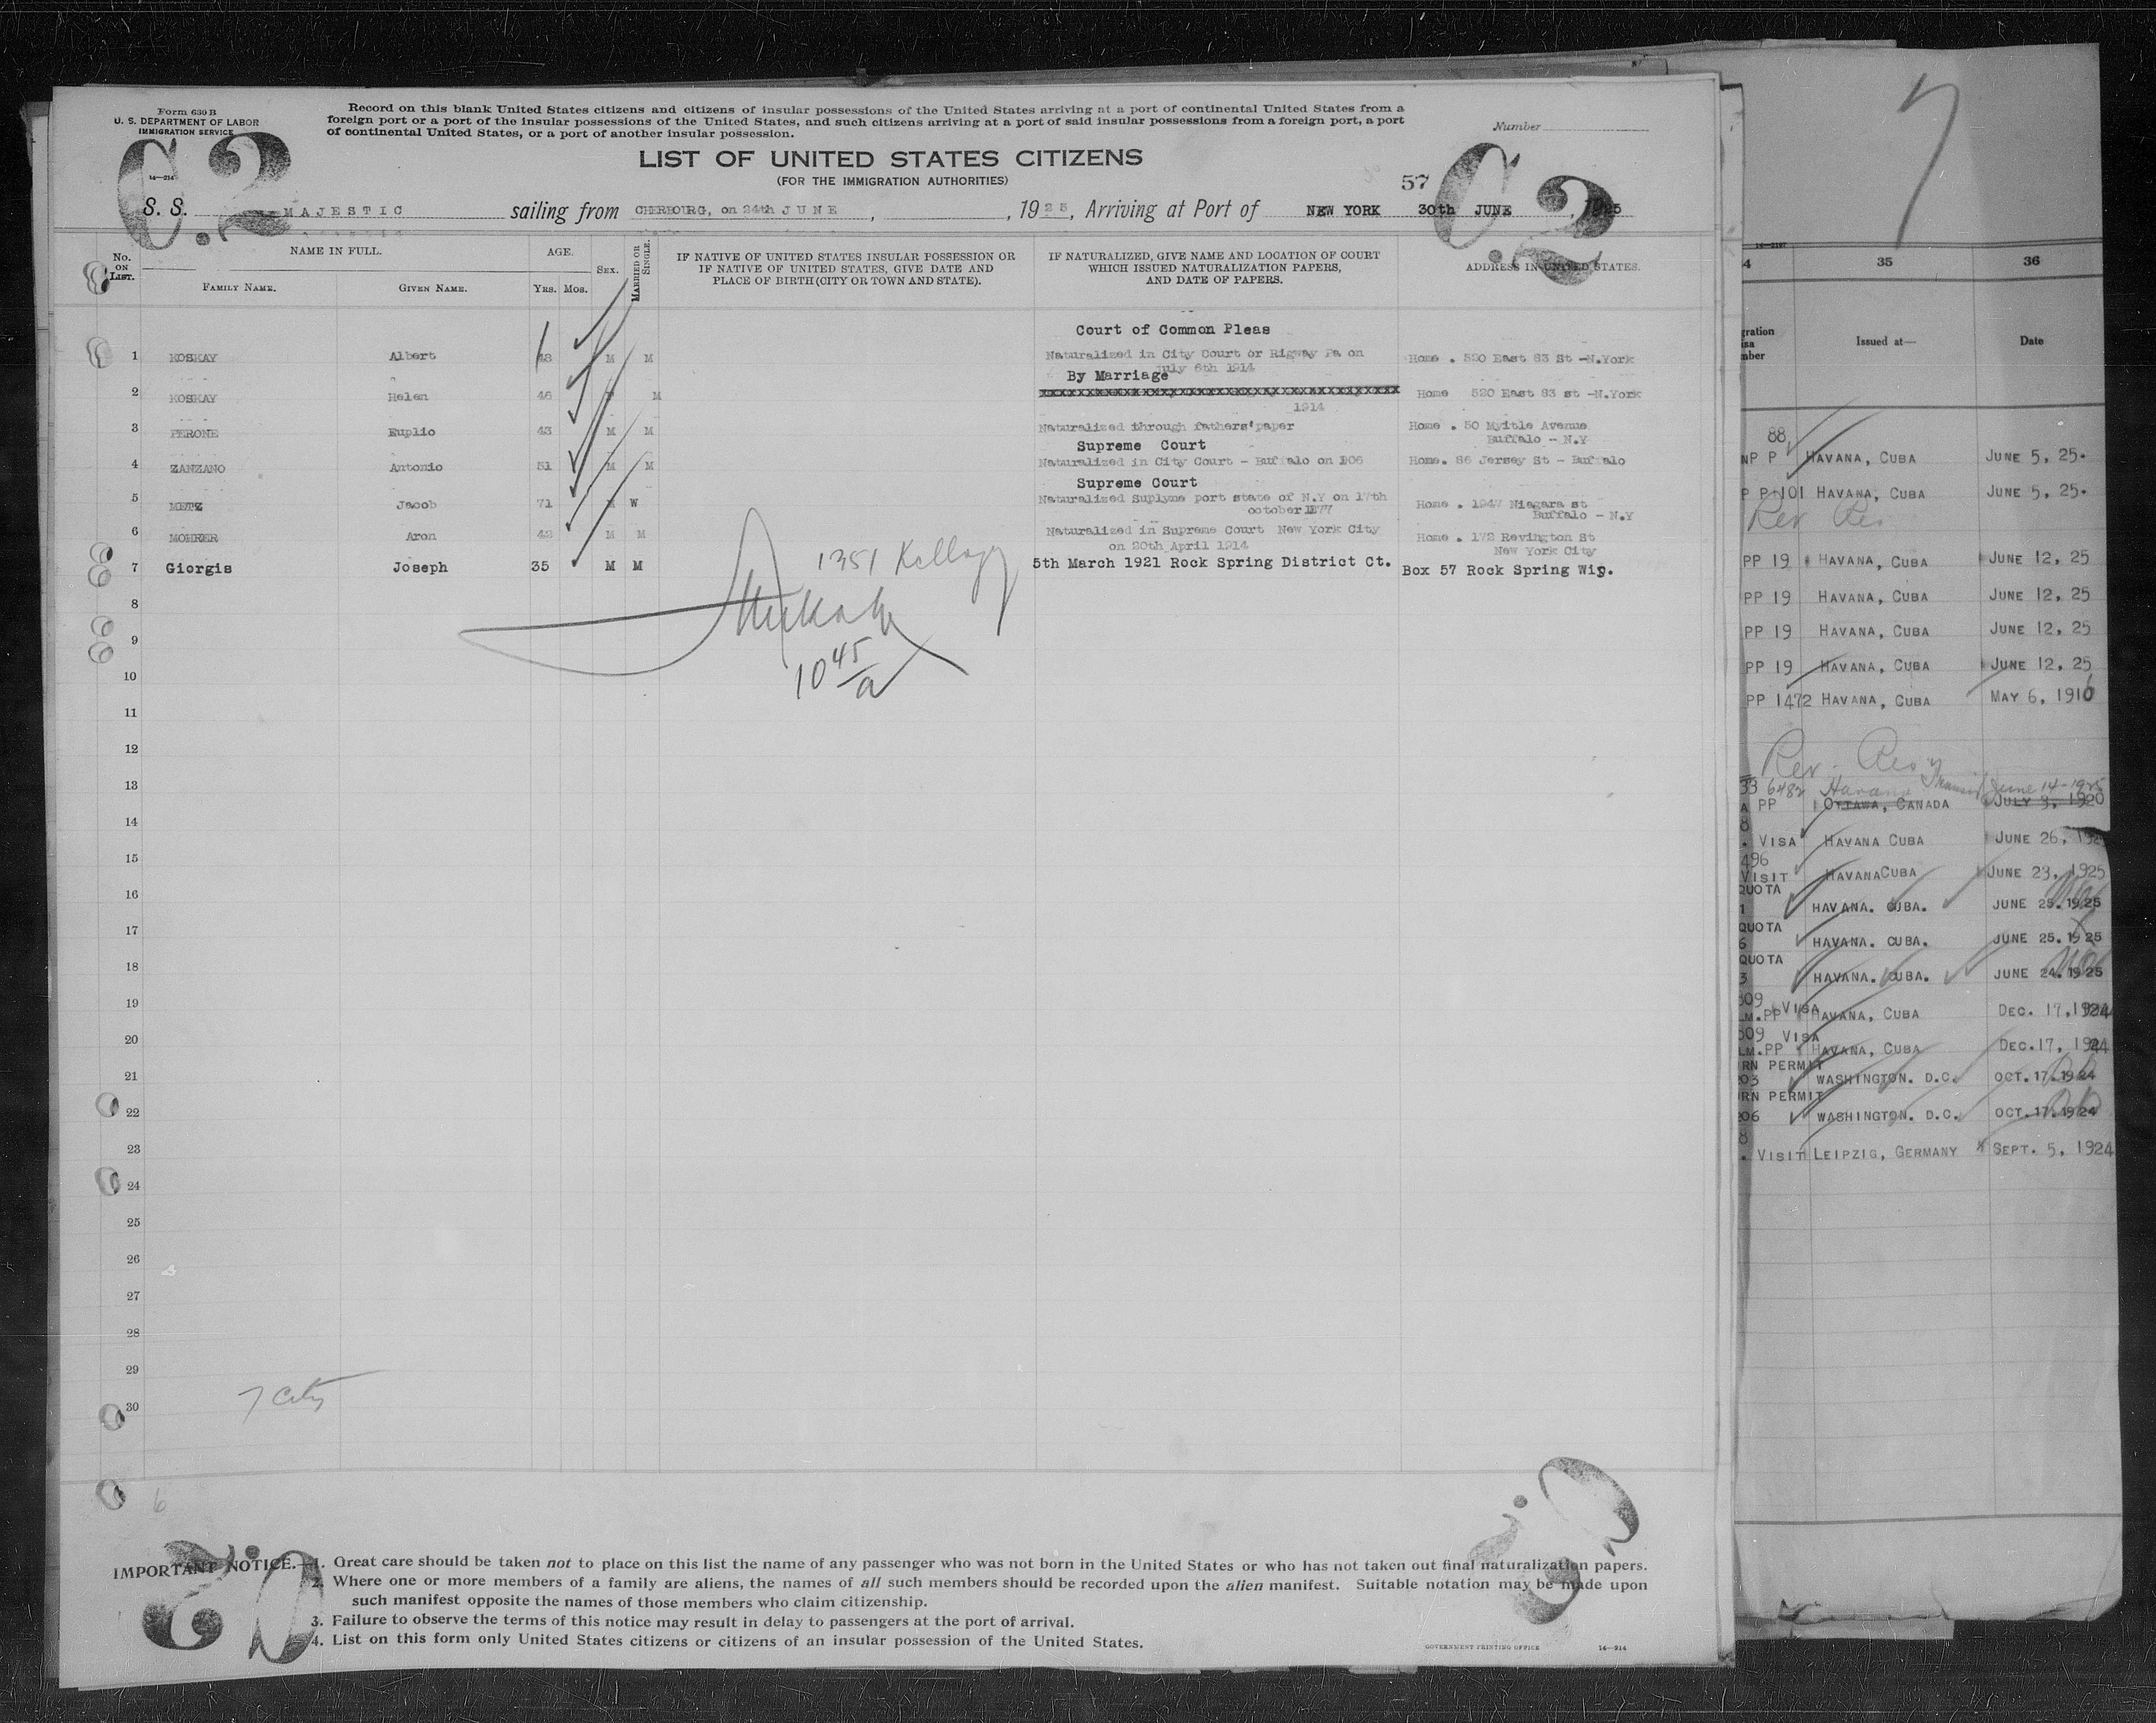 Form 630 B
U. S. DEPARTMENT OF LABOR
IMMIGRATION SERVICE
14—914
Record on this blank United States citizens and citizens of insular possessions of the United States arriving at a port of continental United States from a
foreign port or a port of the insular possessions of the United States, and such citizens arriving at a port of said insular possessions from a foreign port, a port
of continental United States, or a port of another insular possession.
Number
C.2
C.2
LIST OF UNITED STATES CITIZENS
(FOR THE IMMIGRATION AUTHORITIES)
57
S. S. MAJESTIC sailing from CHERBOURG, on 24th JUNE, 1925, Arriving at Port of NEW YORK 30th JUNE, 1925
No. ON LIST. NAME IN FULL. AGE. SEX. MARRIED OR SINGLE. IF NATIVE OF UNITED STATES INSULAR POSSESSION OR IF NATIVE OF UNITED STATES, GIVE DATE AND PLACE OF BIRTH (CITY OR TOWN AND STATE). IF NATURALIZED, GIVE NAME AND LOCATION OF COURT WHICH ISSUED NATURALIZATION PAPERS, AND DATE OF PAPERS. ADDRESS IN UNITED STATES.
FAMILY NAME. GIVEN NAME. YRS. MOS.
Court of Common Pleas
1 KOSKAY Albert 48 M M Naturalized in City Court or Rigway Pa on Home . 520 East 83 St -N.York
july 6th 1914
By Marriage
2 KOSKAY Helen 46 M Home 520 East 83 st -N.York
1914
3 PERONE Euplio 43 M M Naturalized through fathers'paper Home . 50 Myitle Avenue
Buffalo - N.Y
Supreme Court
4 ZANZANO Antonio 51 M M Naturalized in City Court - Buffalo on 1906 Home. 86 Jersey St - Buffalo
Supreme Court
5 METZ Jacob 71 M W Naturalized Suplyme port state of N.Y on 17th Home . 1947 Niagara st
october 1877 Buffalo - N.Y
6 MOHRER Aron 42 M M Naturalized in Supreme Court New York City Home . 172 Revington St
on 20th April 1914 New York City
7 Giorgis Joseph 35 M M 5th March 1921 Rock Spring District Ct. Box 57 Rock Spring Wis.
1351 Kellogg
10 45/a
8
9
10
11
12
13
14
15
16
17
18
19
20
21
22
23
24
25
26
27
28
29
30
7 City
6
IMPORTANT NOTICE.—1. Great care should be taken not to place on this list the name of any passenger who was not born in the United States or who has not taken out final naturalization papers.
2. Where one or more members of a family are aliens, the names of all such members should be recorded upon the alien manifest. Suitable notation may be made upon
such manifest opposite the names of those members who claim citizenship.
3. Failure to observe the terms of this notice may result in delay to passengers at the port of arrival.
4. List on this form only United States citizens or citizens of an insular possession of the United States.
GOVERNMENT PRINTING OFFICE 14—914
C.2
C.2
7
35 36
Issued at— Date
88
NP P HAVANA, CUBA JUNE 5, 25.
P P 101 HAVANA, CUBA JUNE 5, 25.
Rev Res
PP 19 HAVANA, CUBA JUNE 12, 25
PP 19 HAVANA, CUBA JUNE 12, 25
PP 19 HAVANA, CUBA JUNE 12, 25
PP 19 HAVANA, CUBA JUNE 12, 25
PP 1472 HAVANA, CUBA MAY 6, 1916
Rev. Res
33 6482 Havana Transit June 14-1925
PP OTTAWA, CANADA JULY 9, 1920
VISA HAVANA CUBA JUNE 26, 1925
496
VISIT HAVANA CUBA JUNE 23, 1925
QUOTA
1 HAVANA. CUBA. JUNE 25.1925
QUOTA
6 HAVANA. CUBA. JUNE 25.1925
QUOTA
3 HAVANA. CUBA. JUNE 24.1925
309 VISA
LM.PP HAVANA, CUBA DEC. 17, 1924
309 VISA
LM.PP HAVANA, CUBA DEC.17, 1924
RN PERMIT
203 WASHINGTON. D.C. OCT.17.1924
RN PERMIT
206 WASHINGTON. D.C. OCT.17.1924
8
VISIT LEIPZIG, GERMANY SEPT. 5, 1924